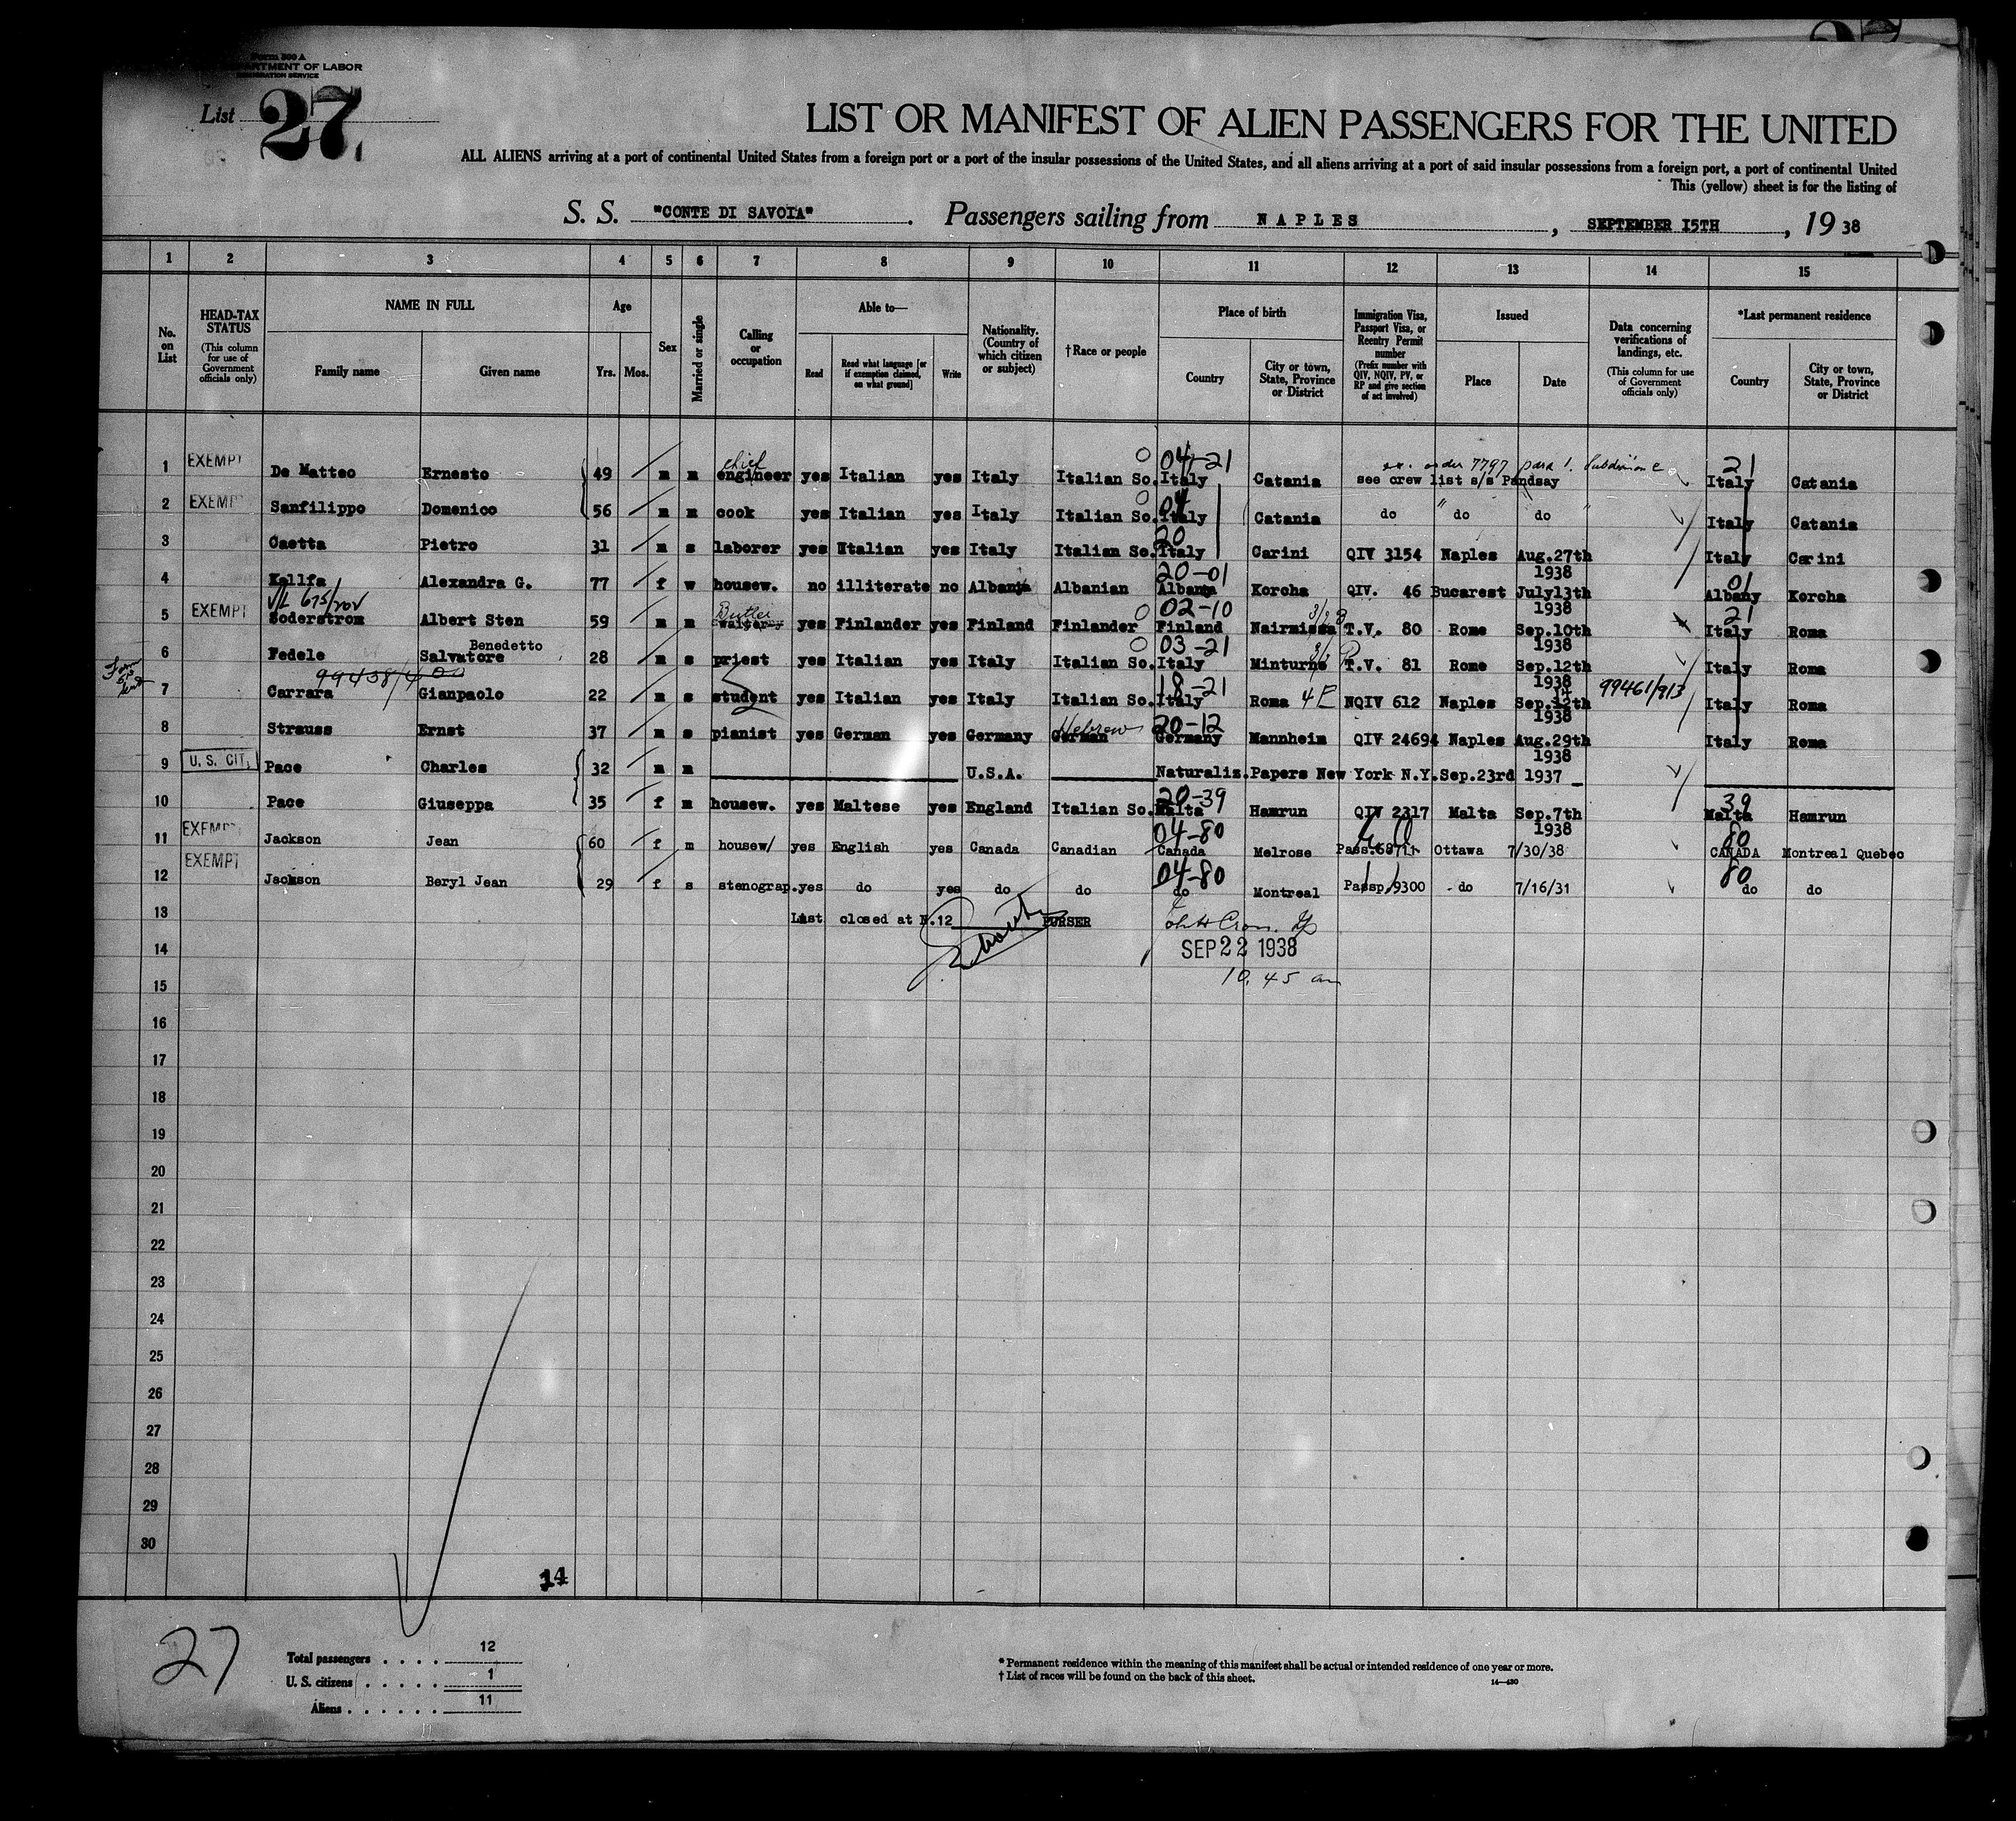 Form 500 A
DEPARTMENT OF LABOR
IMMIGRATION SERVICE
List 27
LIST OR MANIFEST OF ALIEN PASSENGERS FOR THE UNITED
ALL ALIENS arriving at a port of continental United States from a foreign port or a port of the insular possessions of the United States, and all aliens arriving at a port of said insular possessions from a foreign port, a port of continental United
This (yellow) sheet is for the listing of
S. S. "CONTE DI SAVOIA". Passengers sailing from NAPLES, SEPTEMBER 15TH, 19 38
1 2 3 4 5 6 7 8 9 10 11 12 13 14 15
No. on List
HEAD-TAX STATUS (This column for use of Government officials only)
NAME IN FULL
Family name Given name
Age
Yrs. Mos.
Sex
Married or single
Calling or occupation
Able to—
Read Read what language [or if exemption claimed, on what ground] Write
Nationality. (Country of which citizen or subject)
†Race or people
Place of birth
Country City or town, State, Province or District
Immigration Visa, Passport Visa, or Reentry Permit number (Prefix number with QIV, NQIV, PV, or RP and give section of act involved)
Issued
Place Date
Data concerning verifications of landings, etc. (This column for use of Government officials only)
*Last permanent residence
Country City or town, State, Province or District
chief 04-21 ex. order 7797 para 1. Subdivision e 21
1 EXEMPT De Matteo Ernesto 49 m m engineer yes Italian yes Italy Italian So. Italy Catania see crew list s/s Pandsay Italy Catania
04
2 EXEMPT Sanfilippo Domenico 56 m m cook yes Italian yes Italy Italian So. Italy Catania do do do Italy Catania
20
3 Gaetta Pietro 31 m s laborer yes Italian yes Italy Italian So. Italy Carini QIV 3154 Naples Aug.27th 1938 Italy Carini
20-01 01
4 Kallfa Alexandra G. 77 f w housew. no illiterate no Albania Albanian Albania Korcha QIV. 46 Bucarest July13th 1938 Albany Korcha
Butler 02-10 21
5 EXEMPT Soderstrom Albert Sten 59 m m waiter yes Finlander yes Finland Finlander Finland Nairmissa T.V. 80 Rome Sep.10th 1938 Italy Roma
Benedetto 03-21
6 Fedele Salvatore 28 m s priest yes Italian yes Italy Italian So. Italy Minturno T.V. 81 Rome Sep.12th 1938 Italy Roma
99458/400 18-21 99461/913
7 Carrara Gianpaolo 22 m s student yes Italian yes Italy Italian So. Italy Roma 4E NQIV 612 Naples Sep.12th 1938 Italy Roma
Hebrew 20-12
8 Strauss Ernst 37 m s pianist yes German yes Germany German Germany Mannheim QIV 24694 Naples Aug.29th 1938 Italy Roma
9 U. S. CIT. Pace Charles 32 m m U.S.A. Naturaliz. Papers New York N.Y. Sep.23rd 1937
20-39 39
10 Pace Giuseppa 35 f m housew. yes Maltese yes England Italian So. Malta Hamrun QIV 2317 Malta Sep.7th 1938 Malta Hamrun
04-80 80
11 EXEMPT Jackson Jean 60 f m housew/ yes English yes Canada Canadian Canada Melrose Pass.68711 Ottawa 7/30/38 CANADA Montreal Quebec
04-80 80
12 EXEMPT Jackson Beryl Jean 29 f s stenograp. yes do yes do do do Montreal Passp.9300 do 7/16/31 do do
13 List closed at N.12 PURSER
14 SEP 22 1938
15 10.45 am
16
17
18
19
20
21
22
23
24
25
26
27
28
29
30
14
27
Total passengers 12
U. S. citizens 1
Aliens 11
* Permanent residence within the meaning of this manifest shall be actual or intended residence of one year or more.
† List of races will be found on the back of this sheet.
14—430